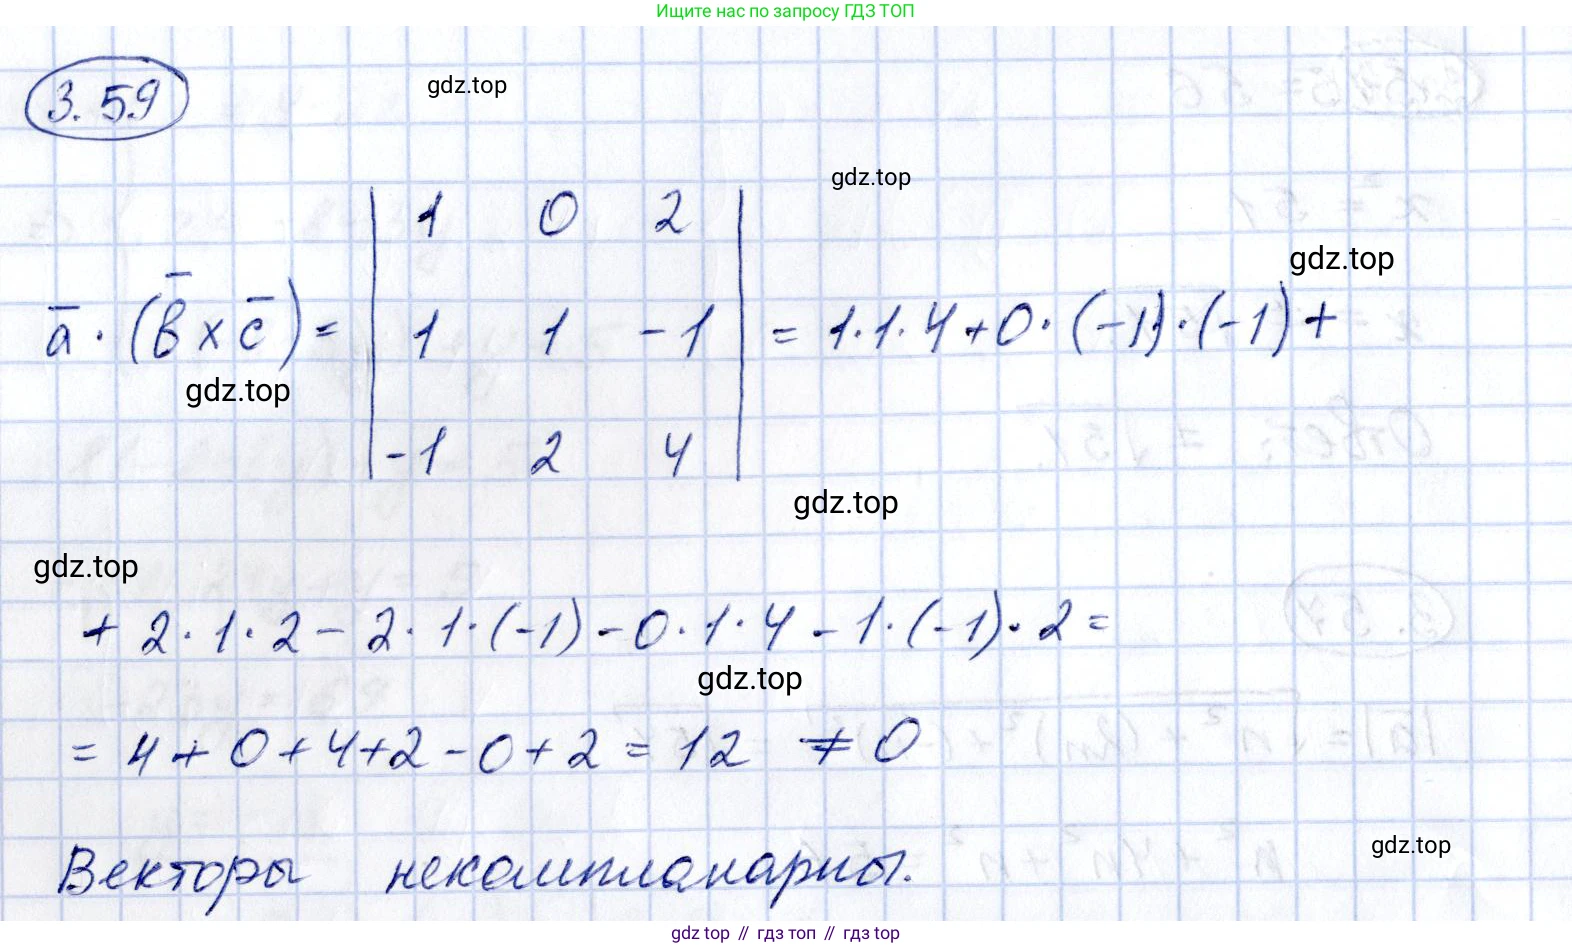 Ищите нас по запросу ГДЗ ТОП
3.59
gdz.top
gdz.top
1 0 2
gdz.top
a̅ · (b̅ × c̅) = | 1 1 -1 | = 1·1·4+0·(-1)·(-1)+
gdz.top
-1 2 4
gdz.top
gdz.top
+ 2·1·2 - 2·1·(-1) - 0·1·4 - 1·(-1)·2 =
gdz.top
= 4 + 0 + 4 + 2 - 0 + 2 = 12 ≠ 0
gdz.top
Векторы некомпланарны.
gdz.top // гдз топ // гдз top